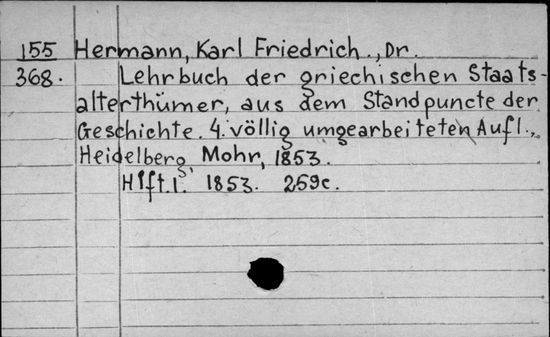 155 Hermann, Karl Friedrich., Dr.
368. Lehrbuch der griechischen Staats-
alterthümer, aus dem Standpuncte der
Geschichte. 4. völlig umgearbeiteten Aufl.,
Heidelberg, Mohr, 1853.
Hlft. I. 1853. 259c.